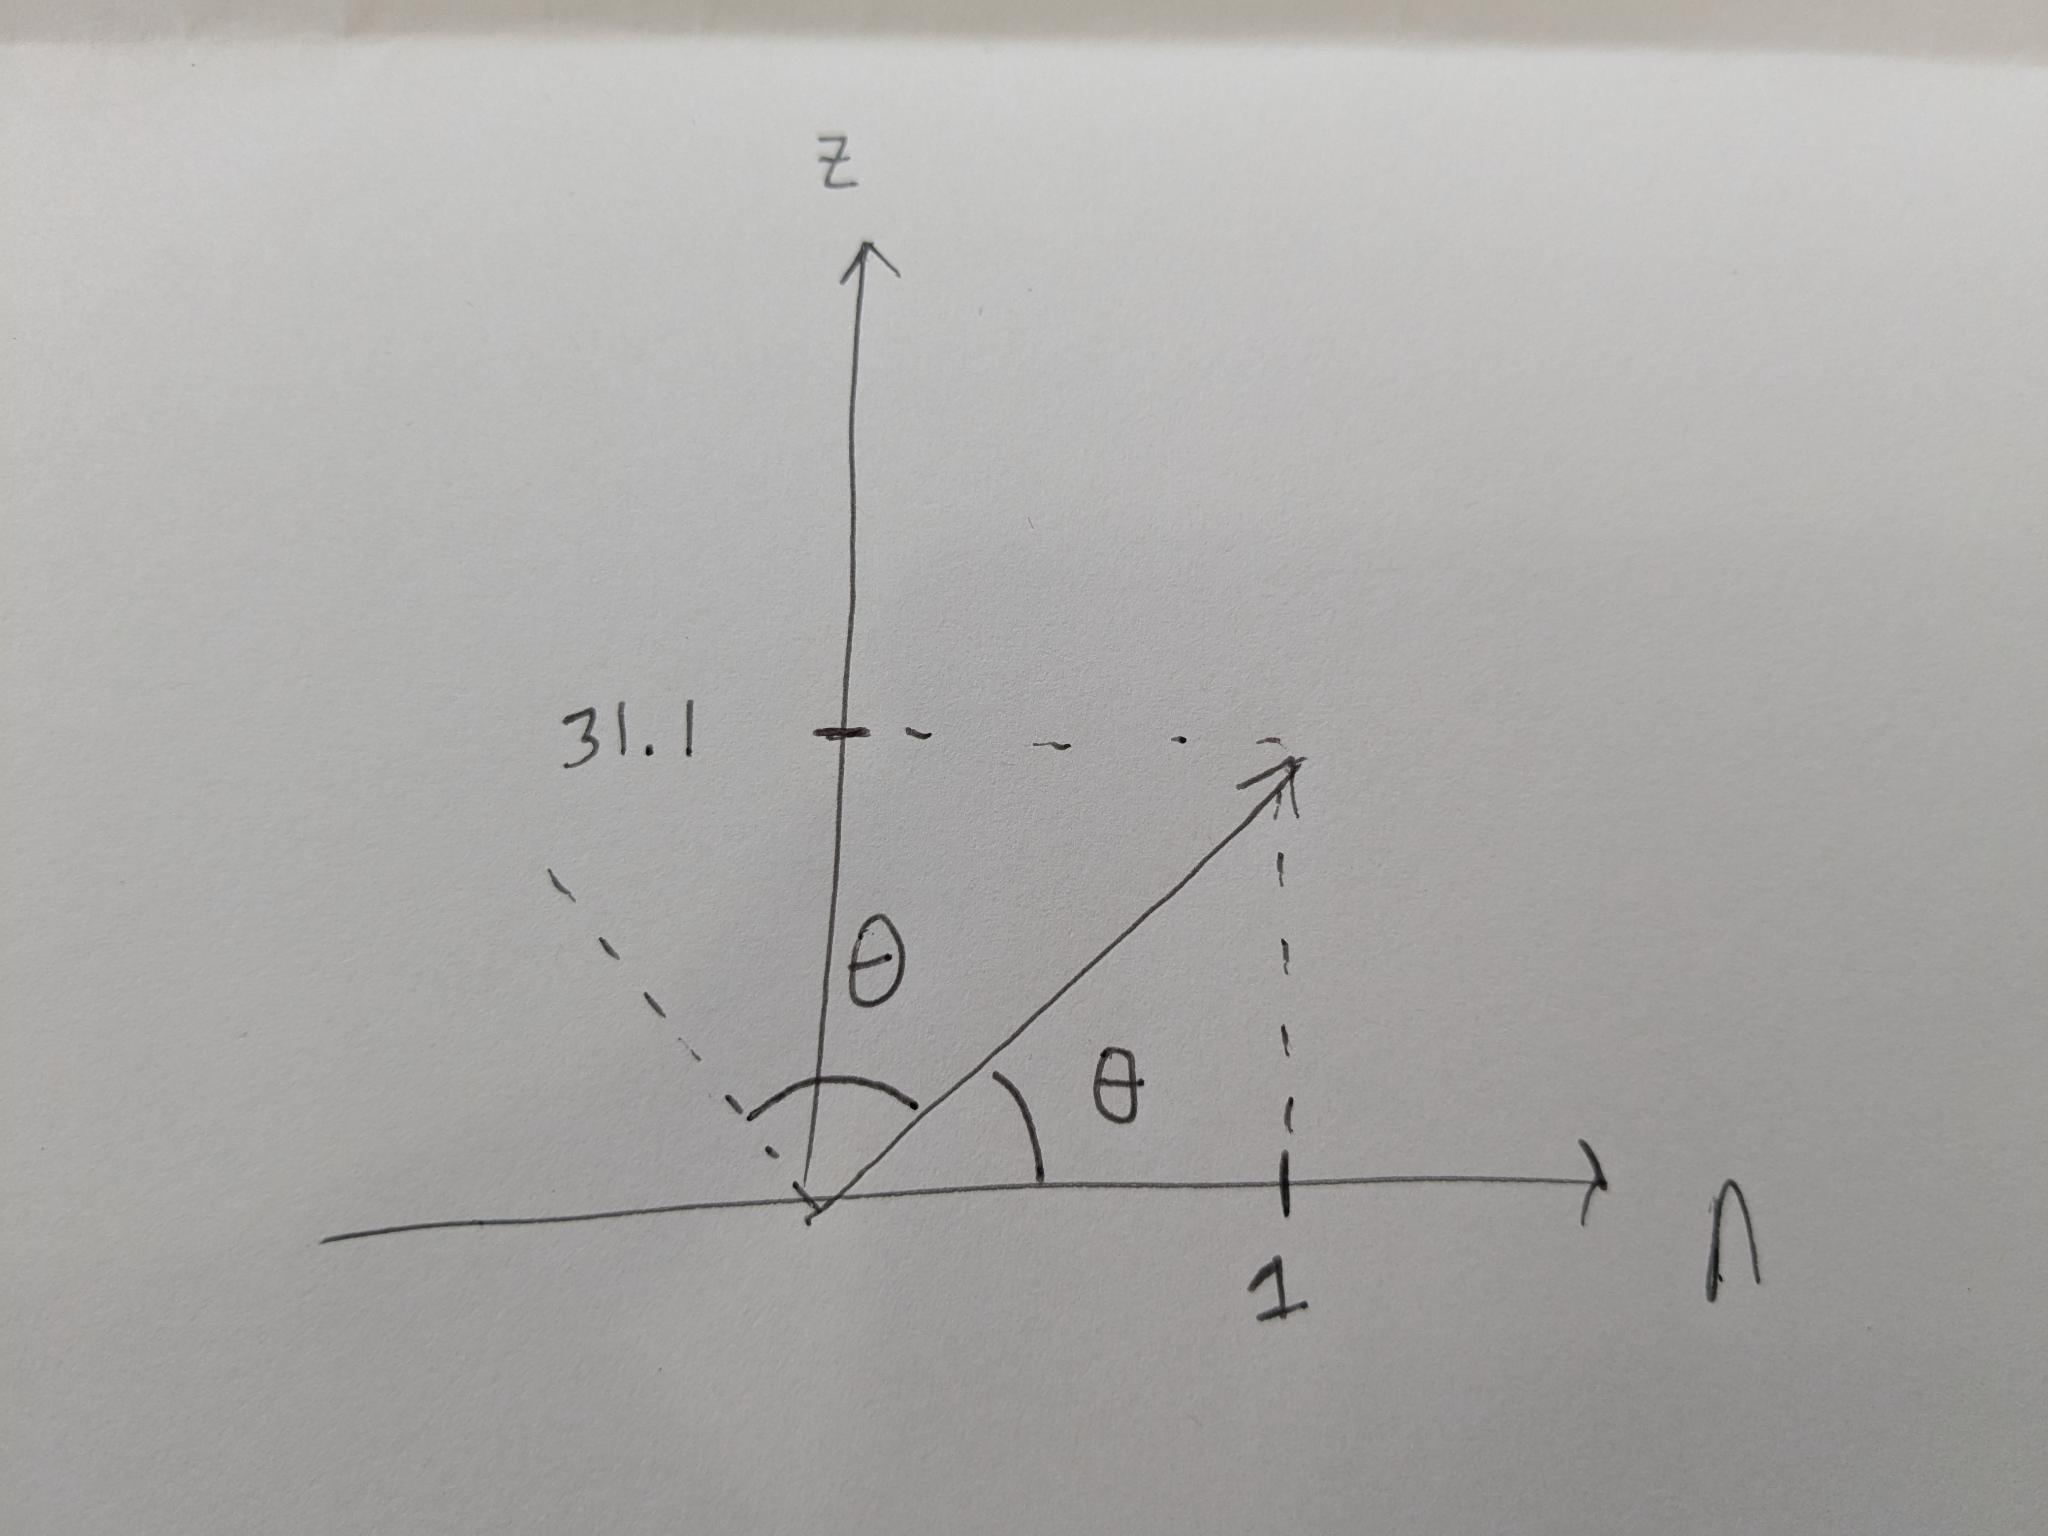 z
31.1
θ
θ
1
n